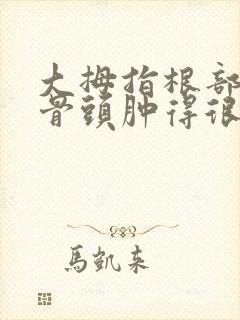 大拇指根部
骨頭肿得很
馬凱来